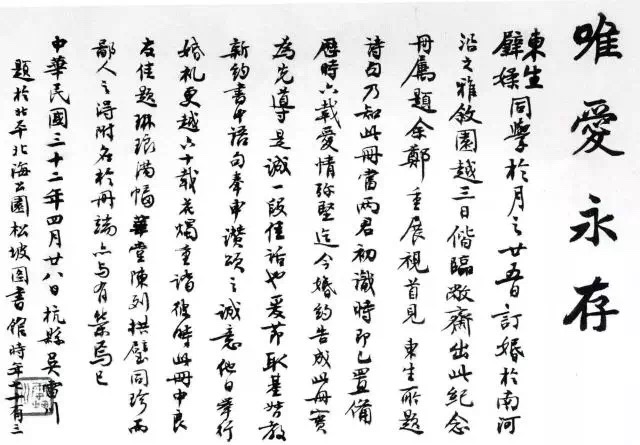 唯愛永存
東生
璧媃
同學於月之廿五日訂婚於南河
沿之雅敘園越三日偕臨敝齋出此紀念
冊屬題余鄭重展視首見東生所題
詩句乃知此冊當兩君初識時即已置備
歷時六載愛情弥堅迄今婚約告成此冊實
為先導是誠一段佳話也爰節取基督教
新約書中語句奉申讚頌之誠意他日舉行
婚礼更越六十載花燭重諧彼時此冊中良
友佳題琳琅滿幅華堂陳列拱璧同珍而
鄙人之得附名於冊端亦与有榮焉已
中華民國三十二年四月廿八日杭縣吳雷川
題於北平北海公園松坡圖書館時年七十有三